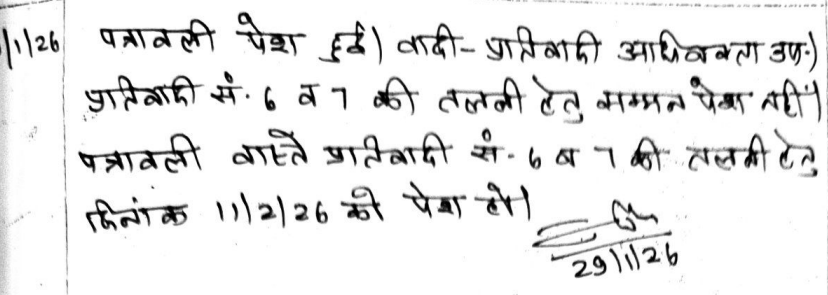 /1/26 पत्रावली पेश हुई। वादी-प्रतिवादी अधिवक्ता उप.।
प्रतिवादी सं. 6 व 7 की तलबी हेतु सम्मन पेश नहीं।
पत्रावली वास्ते प्रतिवादी सं. 6 व 7 की तलबी हेतु
दिनांक 11/2/26 को पेश हो।
29/1/26